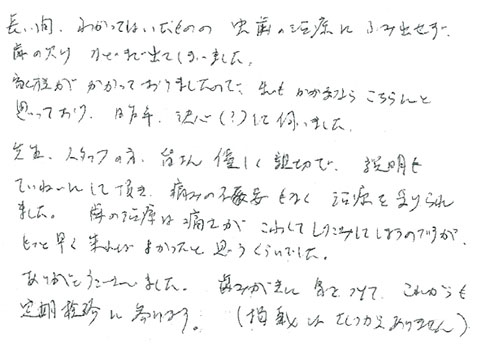 長い間、わかってはいたものの 虫歯の治療に ふみ出せず、
歯の欠け まで出てしまいました。
家族が かかっておりましたので、私も かかるなら こちらへと
思っており、昨年、決心(?)して伺いました。
先生、スタッフの方、皆さん 優しく 親切で、説明も
ていねいにして頂き、痛みの不安もなく 治療を受けられ
ました。 歯の治療は 痛さが こわくて してしまうのですが、
もっと早く 来れば よかったと 思うくらいでした。
ありがとうございました。 歯みがきに 気をつけて、これからも
定期検診に 参ります。 (掲載は さしつかえありません)